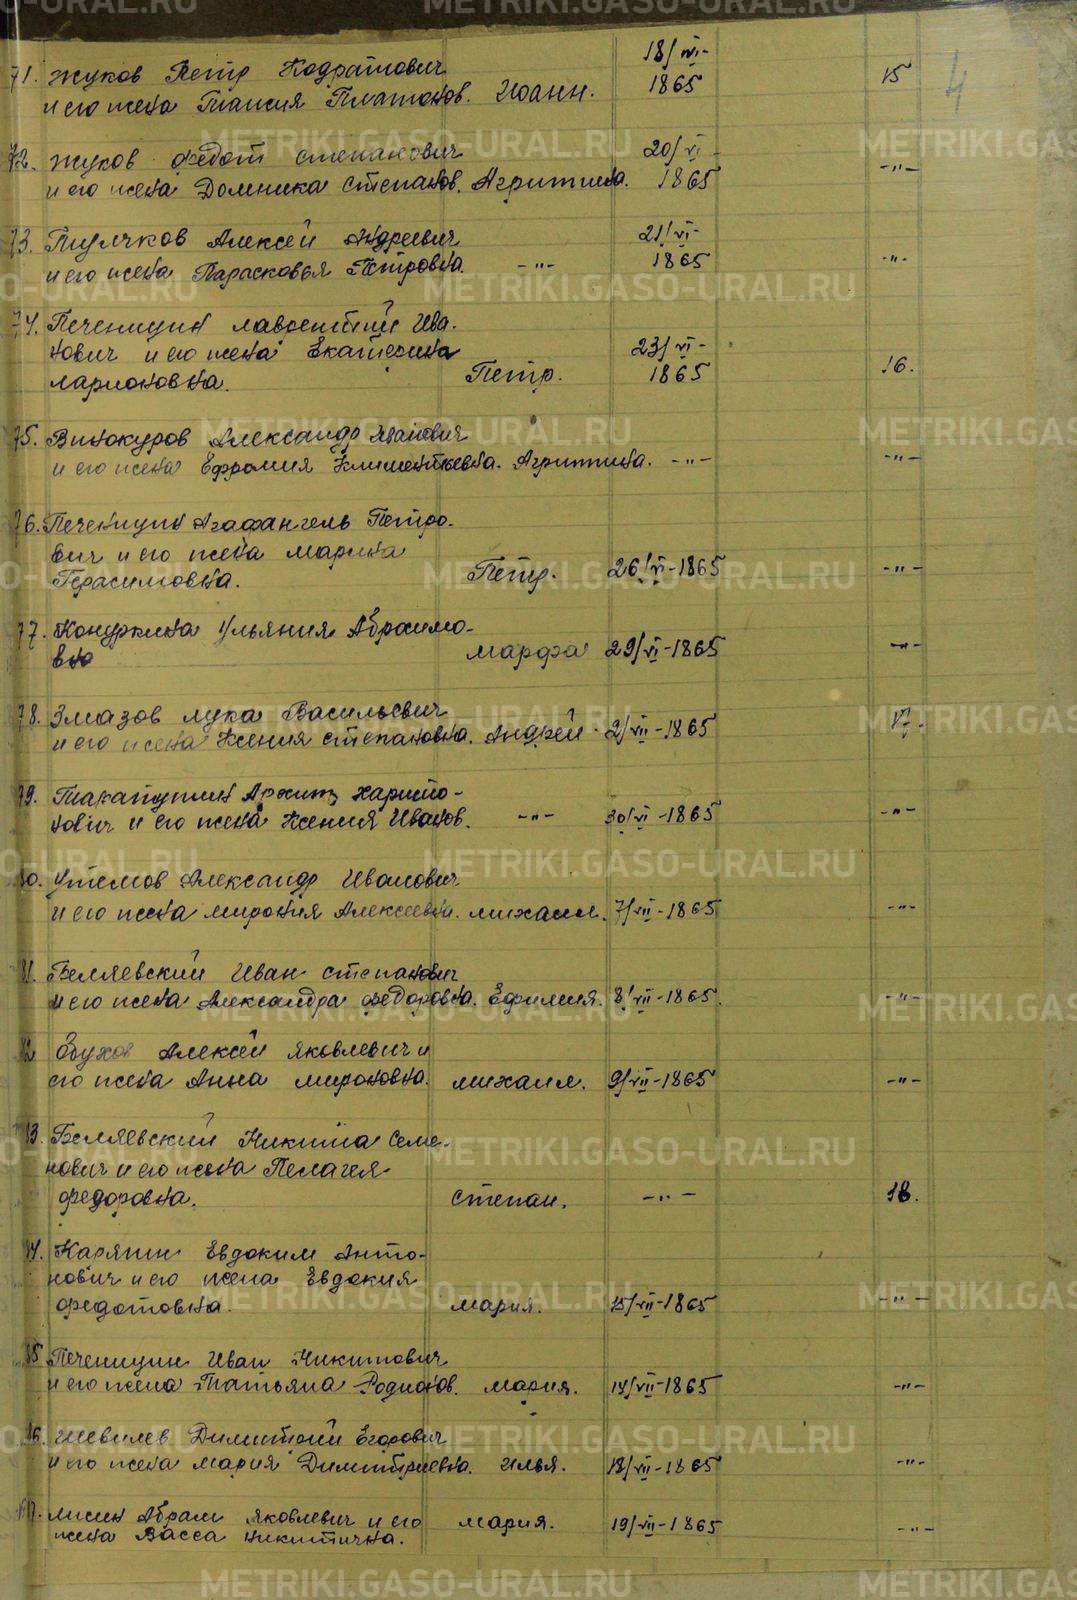 4
18/VI-
71. Жуков Петр Кодратович
и его жена Таисия Платонов. Иоанн. 1865 15
72. Жуков Федот Степанович 20/VI-
и его жена Домника Степанов. Агриппина. 1865 -"-
73. Тюлчков Алексей Андреевич 21/VI-
и его жена Парасковья Петровна. -"- 1865 -"-
74. Печеницин Лаврентий Ива-
нович и его жена Екатерина 23/VI-
Ларионовна. Петр. 1865 16.
75. Винокуров Александр Иванович
и его жена Ефромия Климентьевна. Агриппина. -"- -"-
76. Печеницин Агафангель Петро-
вич и его жена Марина
Герасимовна. Петр. 26/VI-1865 -"-
77. Конуркина Ульяния Абрамо-
вна Марфа 29/VI-1865 -"-
78. Змазов Лука Васильевич
и его жена Ксения Степановна. Андрей. 2/VII-1865 17.
79. Такатушин Архип Харито-
нович и его жена Ксения Иванов. -"- 30/VI-1865 -"-
80. Утемов Александр Иванович
и его жена Мирония Алексеевна. Михаил. 7/VII-1865 -"-
81. Беляевский Иван Степанович
и его жена Александра Федоровна. Ефимия. 8/VII-1865. -"-
82 Обухов Алексей Яковлевич и
его жена Анна Мироновна. Михаил. 9/VII-1865 -"-
83. Беляевский Никита Семе-
нович и его жена Пелагея
Федоровна. Степан. -"- 18.
84. Карякин Евдоким Анто-
нович и его жена Евдокия
Федотовна. Мария. 15/VII-1865 -"-
85 Печеницин Иван Никитович
и его жена Татьяна Родионов. Мария. 14/VII-1865 -"-
86. Шевелев Димитрий Егорович
и его жена Мария Димитриевна. Илья. 18/VII-1865 -"-
87. Лисин Абрам Яковлевич и его Мария. 19/VII-1865
жена Васса Никитична. -"-
METRIKI.GASO-URAL.RU